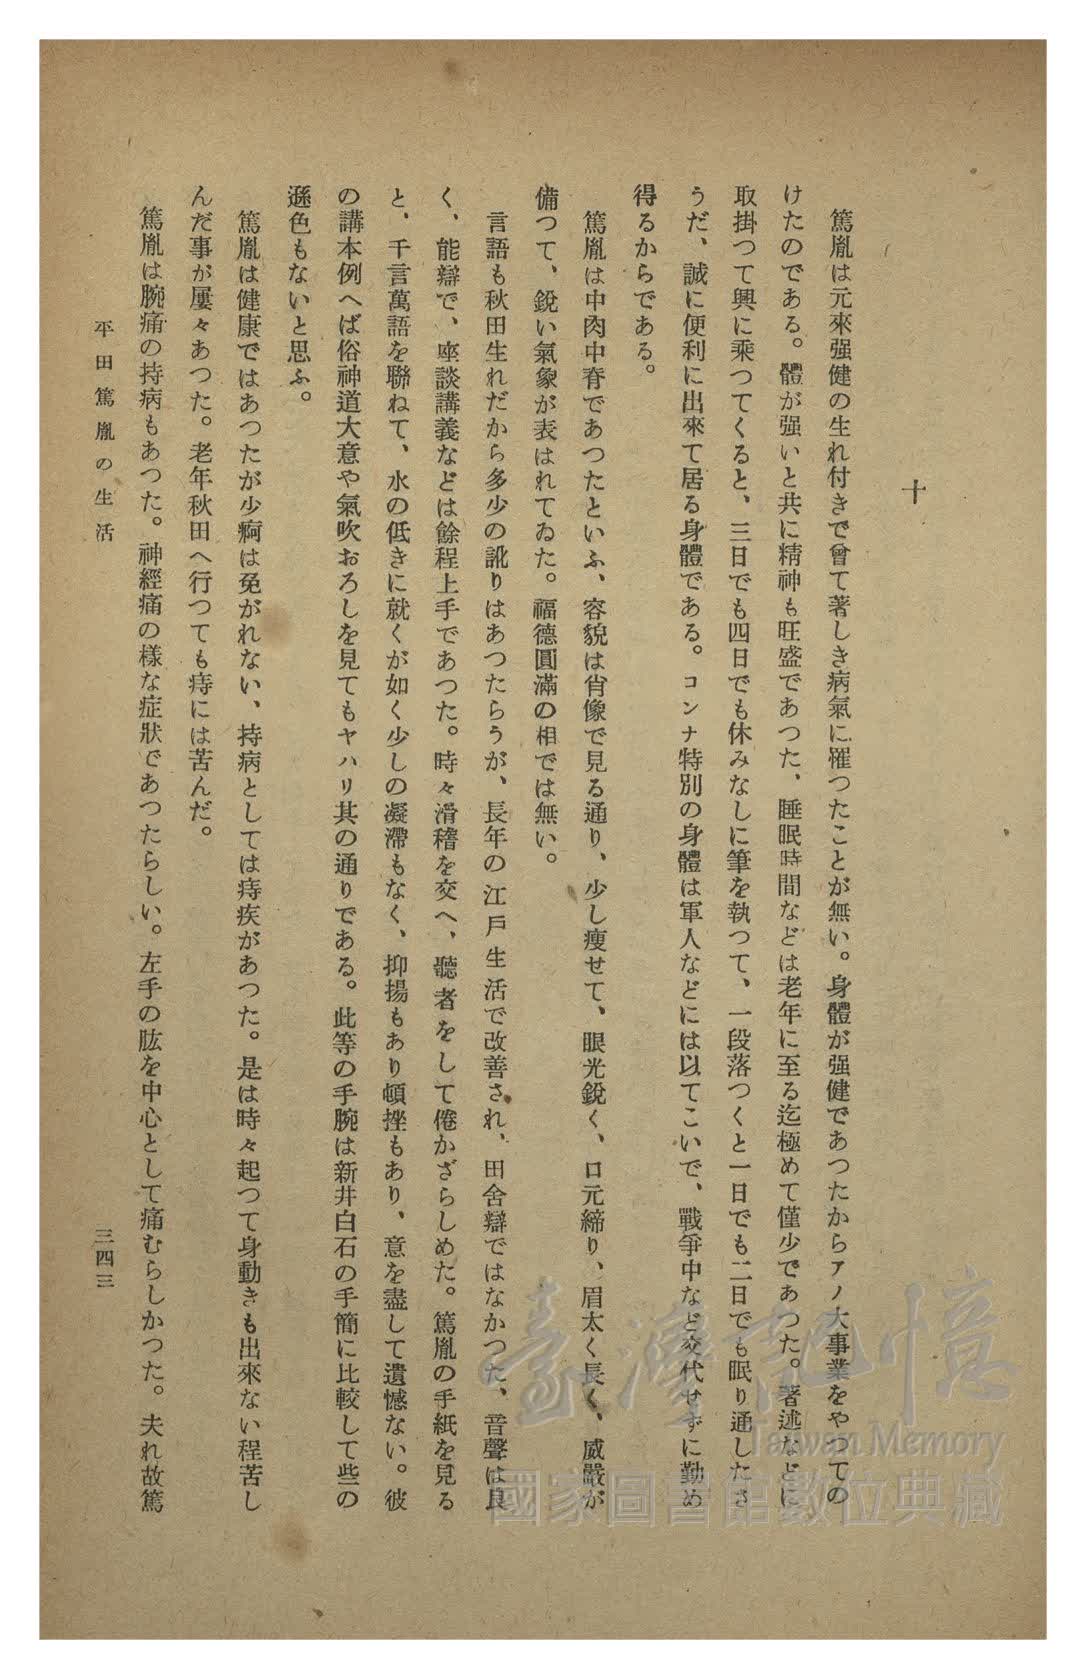 十
篤胤は元來强健の生れ付きで曾て著しき病氣に罹つたことが無い。身體が强健であつたからアノ大事業をやつての
けたのである。體が强いと共に精神も旺盛であつた、睡眠時間などは老年に至る迄極めて僅少であつた。著述などに
取掛つて興に乘つてくると、三日でも四日でも休みなしに筆を執つて、一段落つくと一日でも二日でも眠り通したさ
うだ、誠に便利に出來て居る身體である。コンナ特別の身體は軍人などには以てこいで、戰爭中など交代せずに勤め
得るからである。
篤胤は中肉中脊であつたといふ、容貌は肖像で見る通り、少し瘦せて、眼光銳く、口元締り、眉太く長く、威嚴が
備つて、銳い氣象が表はれてゐた。福德圓滿の相では無い。
言語も秋田生れだから多少の訛りはあつたらうが、長年の江戶生活で改善され、田舍辯ではなかつた、音聲は良
く、能辯で、座談講義などは餘程上手であつた。時々滑稽を交へ、聽者をして倦かざらしめた。篤胤の手紙を見る
と、千言萬語を聯ねて、水の低きに就くが如く少しの凝滯もなく、抑揚もあり頓挫もあり、意を盡して遺憾ない。彼
の講本例へば俗神道大意や氣吹おろしを見てもヤハリ其の通りである。此等の手腕は新井白石の手簡に比較して些の
遜色もないと思ふ。
篤胤は健康ではあつたが少痾は免がれない、持病としては痔疾があつた。是は時々起つて身動きも出來ない程苦し
んだ事が屢々あつた。老年秋田へ行つても痔には苦んだ。
篤胤は腕痛の持病もあつた。神經痛の樣な症狀であつたらしい。左手の肱を中心として痛むらしかつた。夫れ故篤
平田篤胤の生活
三四三
臺灣記憶
Taiwan Memory
國家圖書館數位典藏